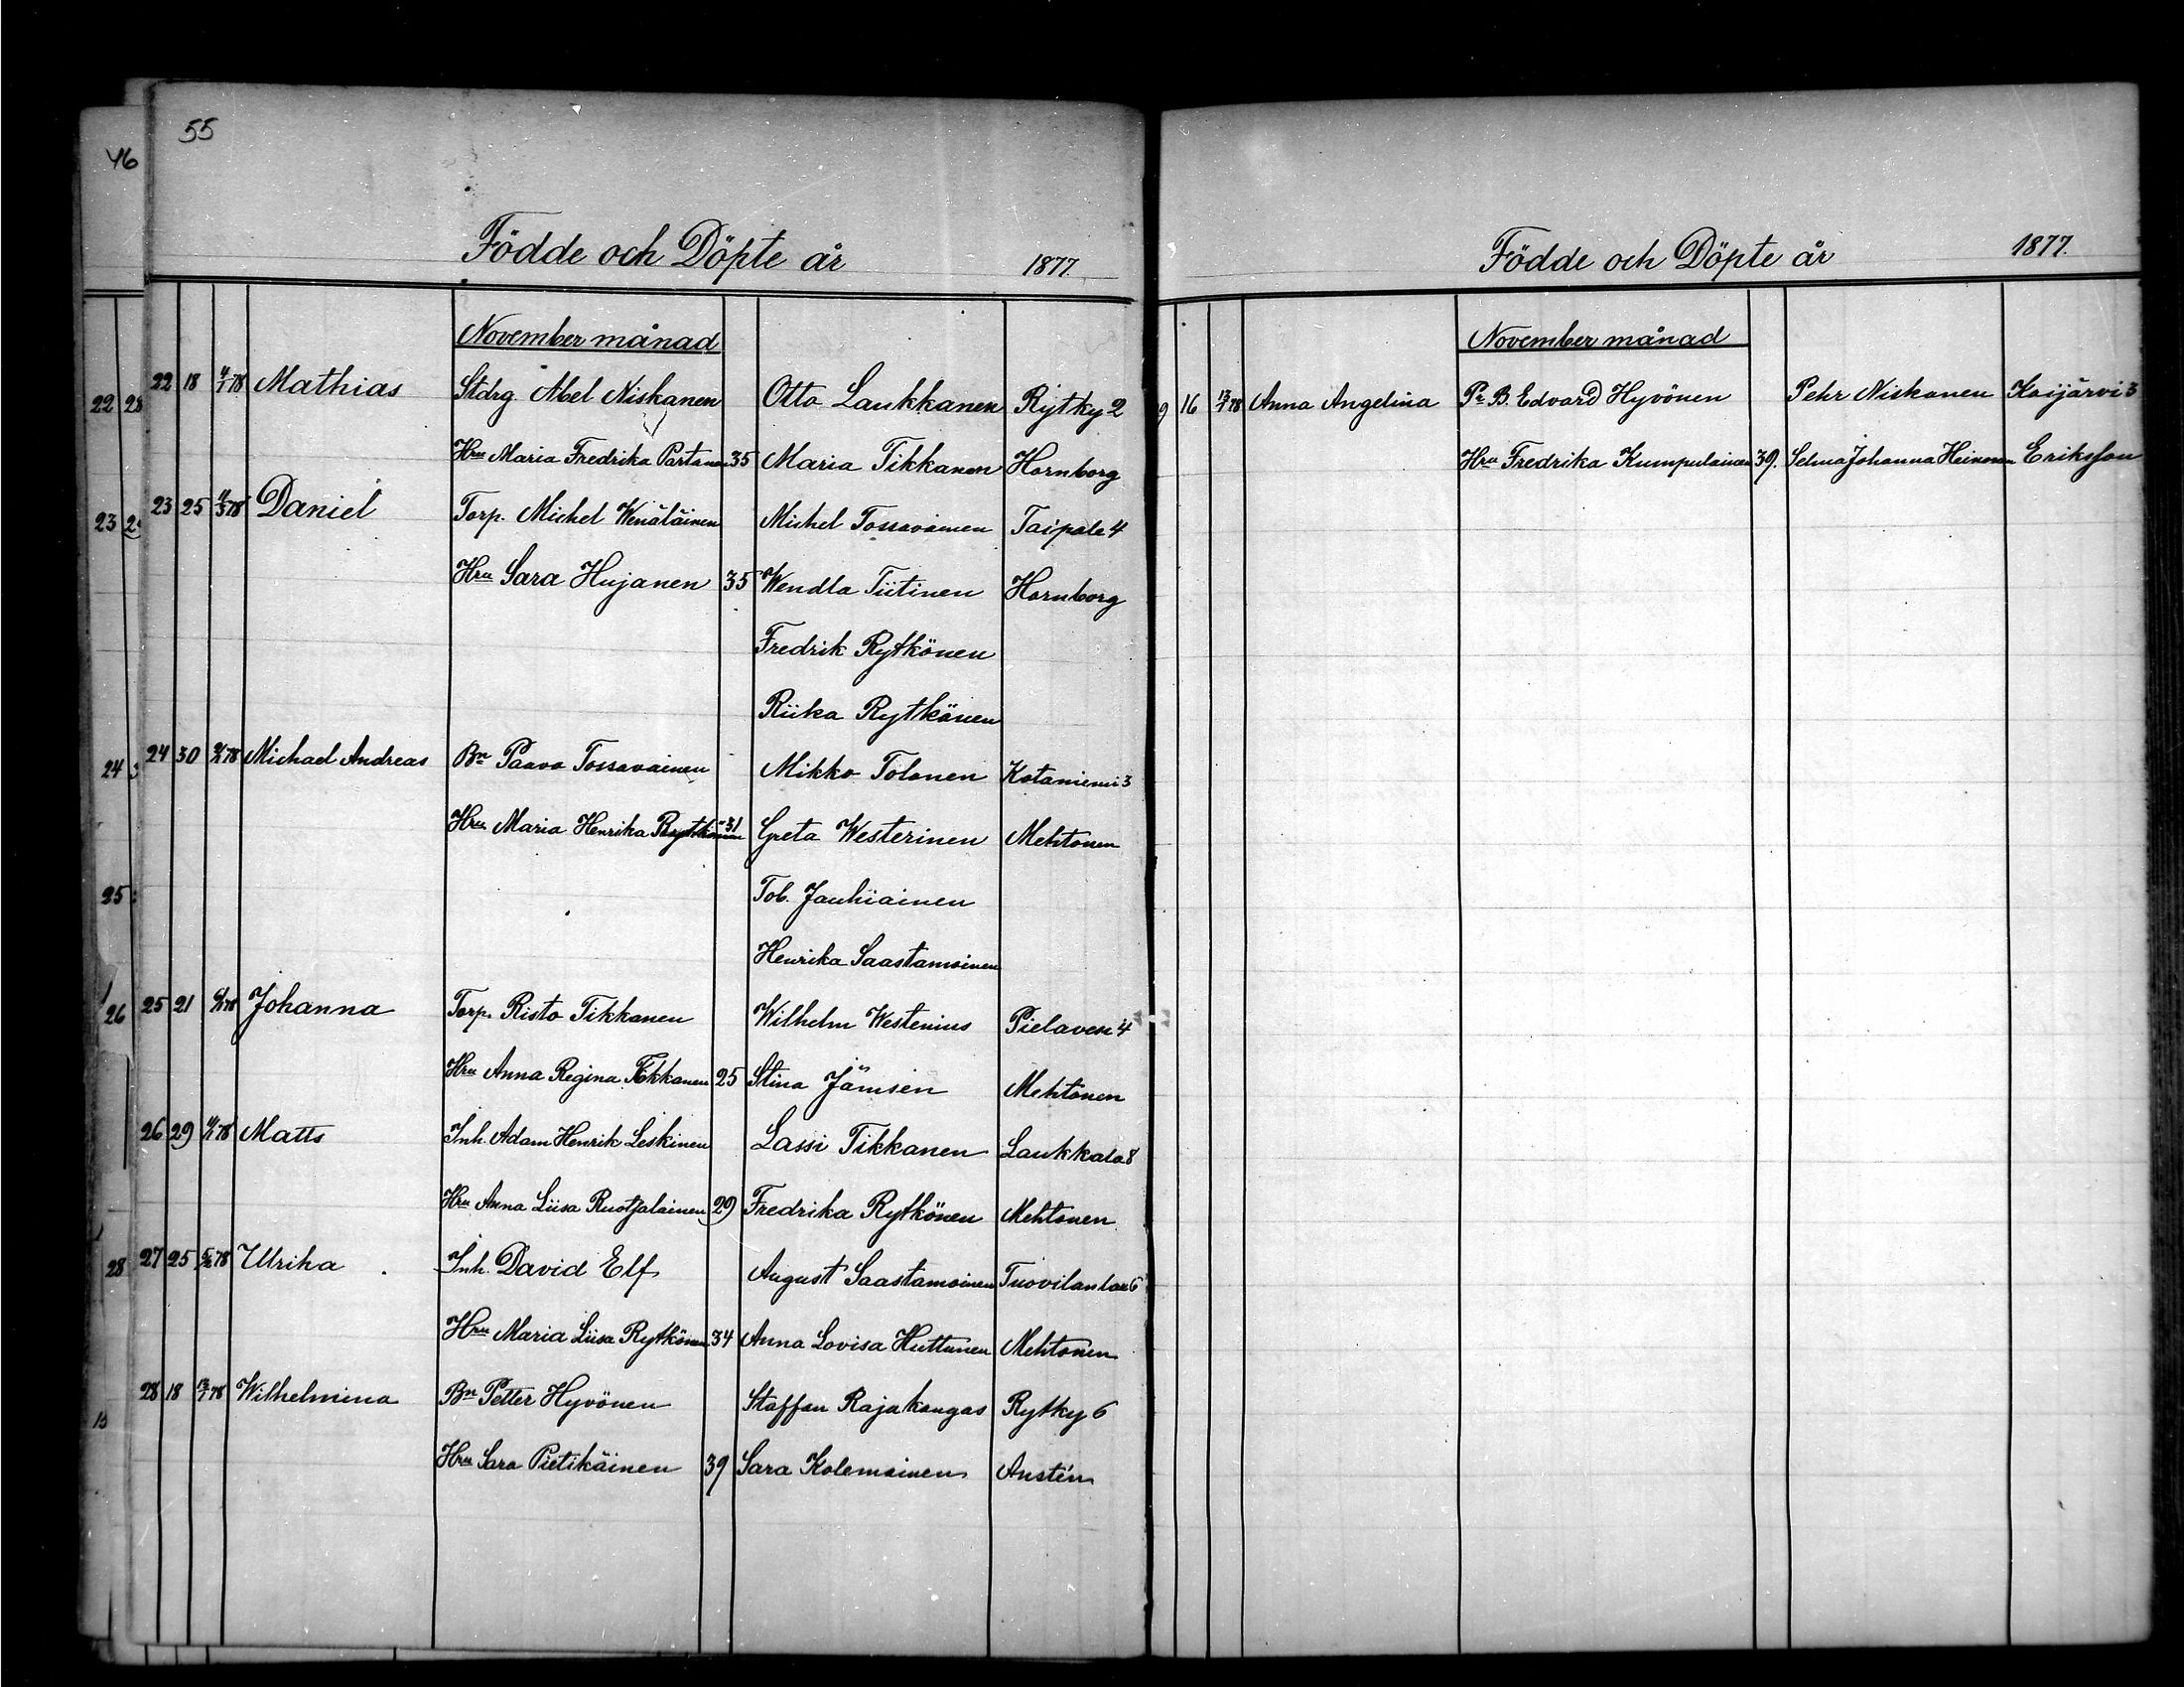 55
46
Födde och Döpte år 1877.
November månad
22 18 4/1 78 Mathias Stdrg Abel Niskanen Otto Laukkanen Rytky 2
Hru Maria Fredrika Partanen 35 Maria Tikkanen Hornborg
23 25 78 Daniel Torp. Michel Wenäläinen Michel Tossavainen Taipale 4
Hru Sara Hujanen 35 Wendla Tiitinen Hornborg
Fredrik Rytkönen
Riika Rytkönen
24 30 78 Michael Andreas Bn Paavo Tossavainen Mikko Tolonen Kotaniemi 3
Hru Maria Henrika Rytkönen 31 Greta Westerinen Mehtonen
Tob. Jauhiainen
Henrika Saastamoinen
25 21 78 Johanna Torp. Risto Tikkanen Wilhelm Westenius Pielavesi 4
Hru Anna Regina Tikkanen 25 Stina Jämsén Mehtonen
26 29 78 Matts Inh. Adam Henrik Leskinen Lassi Tikkanen Laukkala 8
Hru Anna Liisa Ruotsalainen 29 Fredrika Rytkönen Mehtonen
27 25 78 Ulrika Inh. David Elf August Saastamoinen Tuovilanlax 6
Hru Maria Liisa Rytkönen 34 Anna Lovisa Huttunen Mehtonen
28 18 13/1 78 Wilhelmina Bn Petter Hyvönen Staffan Rajakangas Rytky 6
Hru Sara Pietikäinen 39 Sara Kolemainen Austén
22 28
23
24
25
26
28
Födde och Döpte år 1877.
November månad
9 16 13/1 78 Anna Angelina Pr B. Edvard Hyvönen Pehr Niskanen Kaijärvi 3
Hru Fredrika Kumpulainen 39. Selma Johanna Heinonen Eriksson